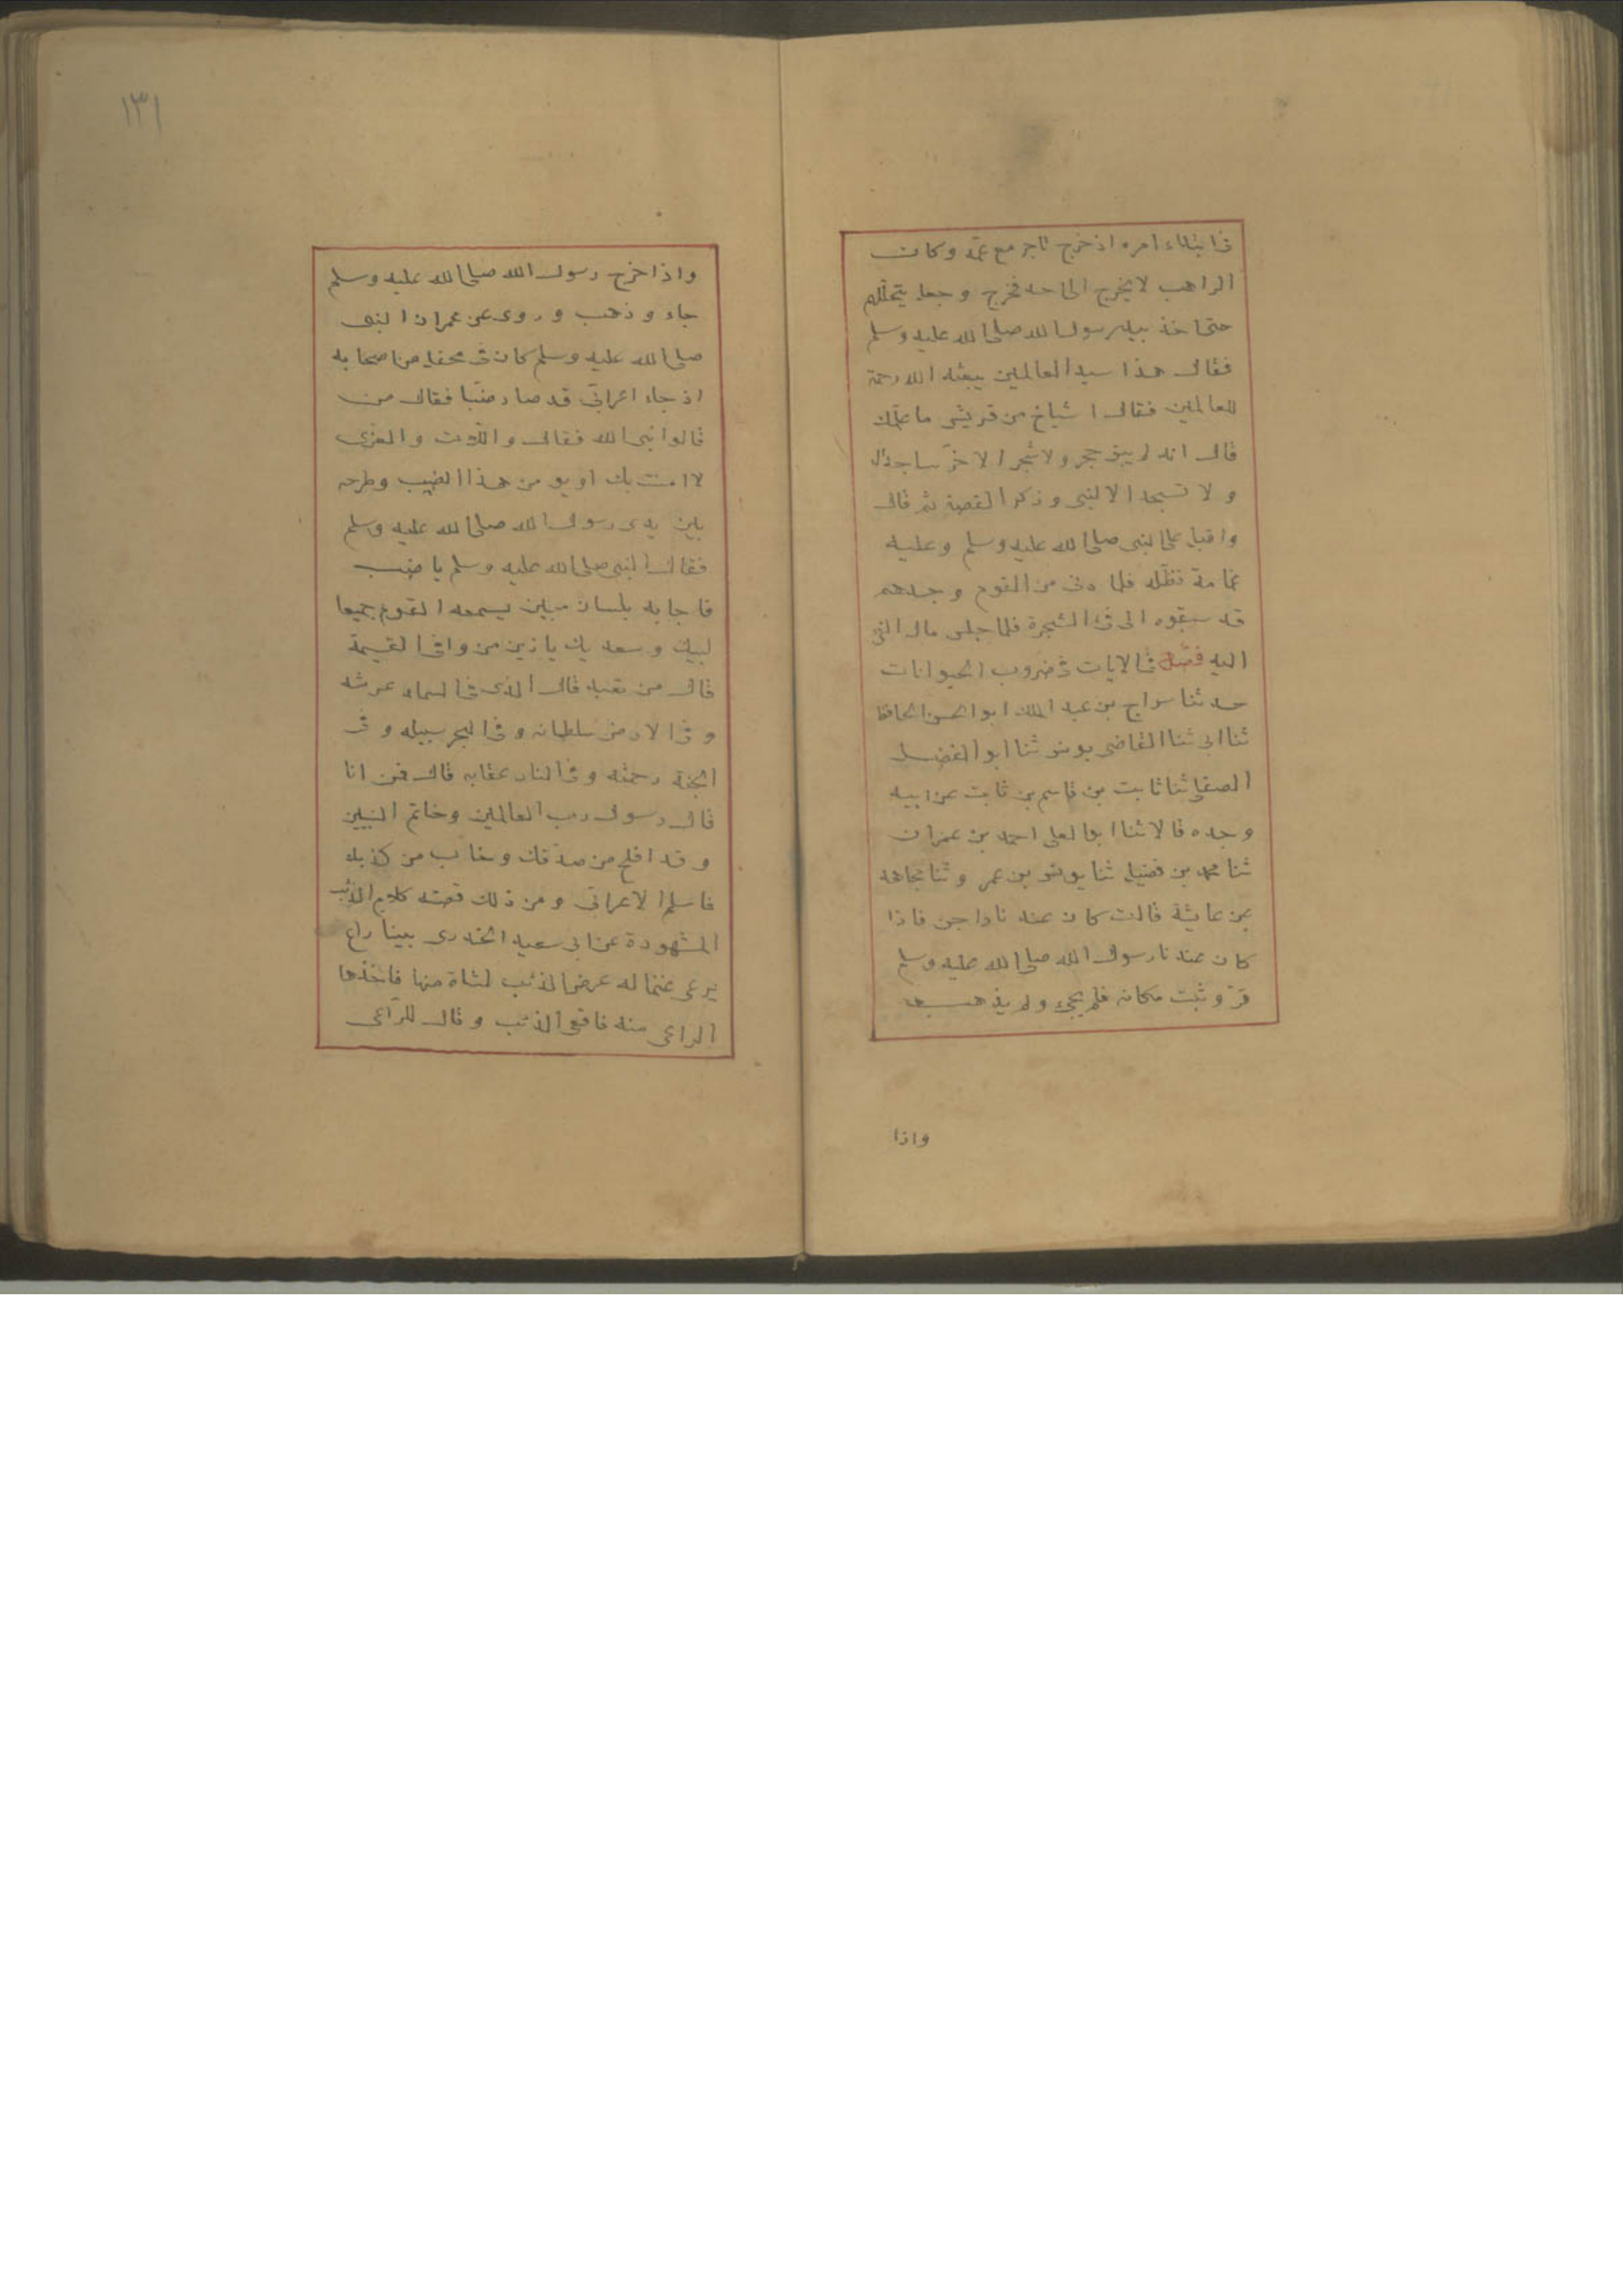 فى ابتداء امره اذ خرج تاجرا مع عمه وكان
الراهب لا يخرج الى احد فخرج وجعل يتخللهم
حتى اخذ بيد رسول الله صلى الله عليه وسلم
فقال هذا سيد العالمين يبعثه الله رحمة
للعالمين فقال اشياخ من قريش ما علمك
قال انه لم يبق حجر ولا شجر الا خرّ ساجدا له
ولا تسجد الا لنبى وذكر القصة ثم قال
واقبل على النبى صلى الله عليه وسلم وعليه
غمامة تظلّه فلما دنى من القوم وجدهم
قد سبقوه الى فئ الشجرة فلما جلس مال الفئ
اليه فصل فى الايات فى ضروب الحيوانات
حدثنا سراج بن عبد الملك ابو الحسن الحافظ
ثنا ابى ثنا القاضى يونس ثنا ابو الفضل
الصقلى ثنا ثابت بن قاسم بن ثابت عن ابيه
وجده قالا ثنا ابو العلى احمد بن عمران
ثنا محمد بن فضيل ثنا يونس بن عمر وثنا مجاهد
عن عايشة قالت كان عندنا داجن فاذا
كان عندنا رسول الله صلى الله عليه وسلم
قرّ وثبت مكانه فلم يجئ ولم يذهب
واذا
١٣١
واذا خرج رسول الله صلى الله عليه وسلم
جاء وذهب وروى عن عمران النبى
صلى الله عليه وسلم كان فى محفل من اصحابه
اذ جاء اعرابى قد صاد ضبّا فقال من
قالوا نبى الله فقال واللات والعزى
لا امنت بك او يؤمن هذا الضب وطرحه
بين يدى رسول الله صلى الله عليه وسلم
فقال النبى صلى الله عليه وسلم يا ضب
فاجابه بلسان مبين يسمعه القوم جميعا
لبيك وسعديك يا زين من وافى القيمة
قال من تعبد قال الذى فى السماء عرشه
وفى الارض سلطانه وفى البحر سبيله وفى
الجنة رحمته وفى النار عقابه قال فمن انا
قال رسول رب العالمين وخاتم النبيين
وقد افلح من صدقك وخاب من كذبك
فاسلم الاعرابى ومن ذلك قصة كلام الذئب
المشهودة عن ابى سعيد الخدرى بينا راع
يرعى غنما له عرض الذئب لشاة منها فاخذها
الراعى منه فاقعى الذئب وقال للراعى